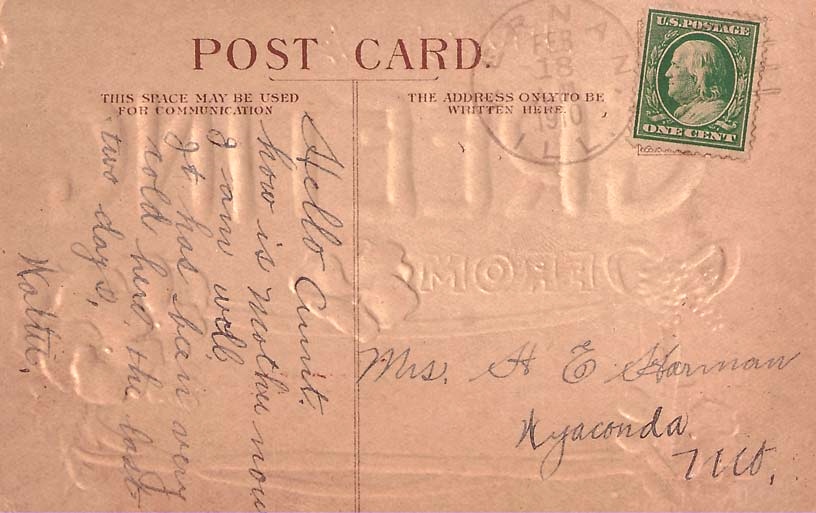 POST CARD.
THIS SPACE MAY BE USED
FOR COMMUNICATION
THE ADDRESS ONLY TO BE
WRITTEN HERE.
FEB
18
1910
ILL.
U.S. POSTAGE
ONE CENT
Hello Aunt.
how is mother now
I am well
It has bain very
cold here the last
two days.
FROM
Mrs. H E Harman
Wyaconda
Mo.